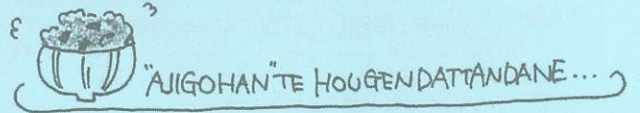 "AJIGOHAN"TE HOUGENDATTANDANE...